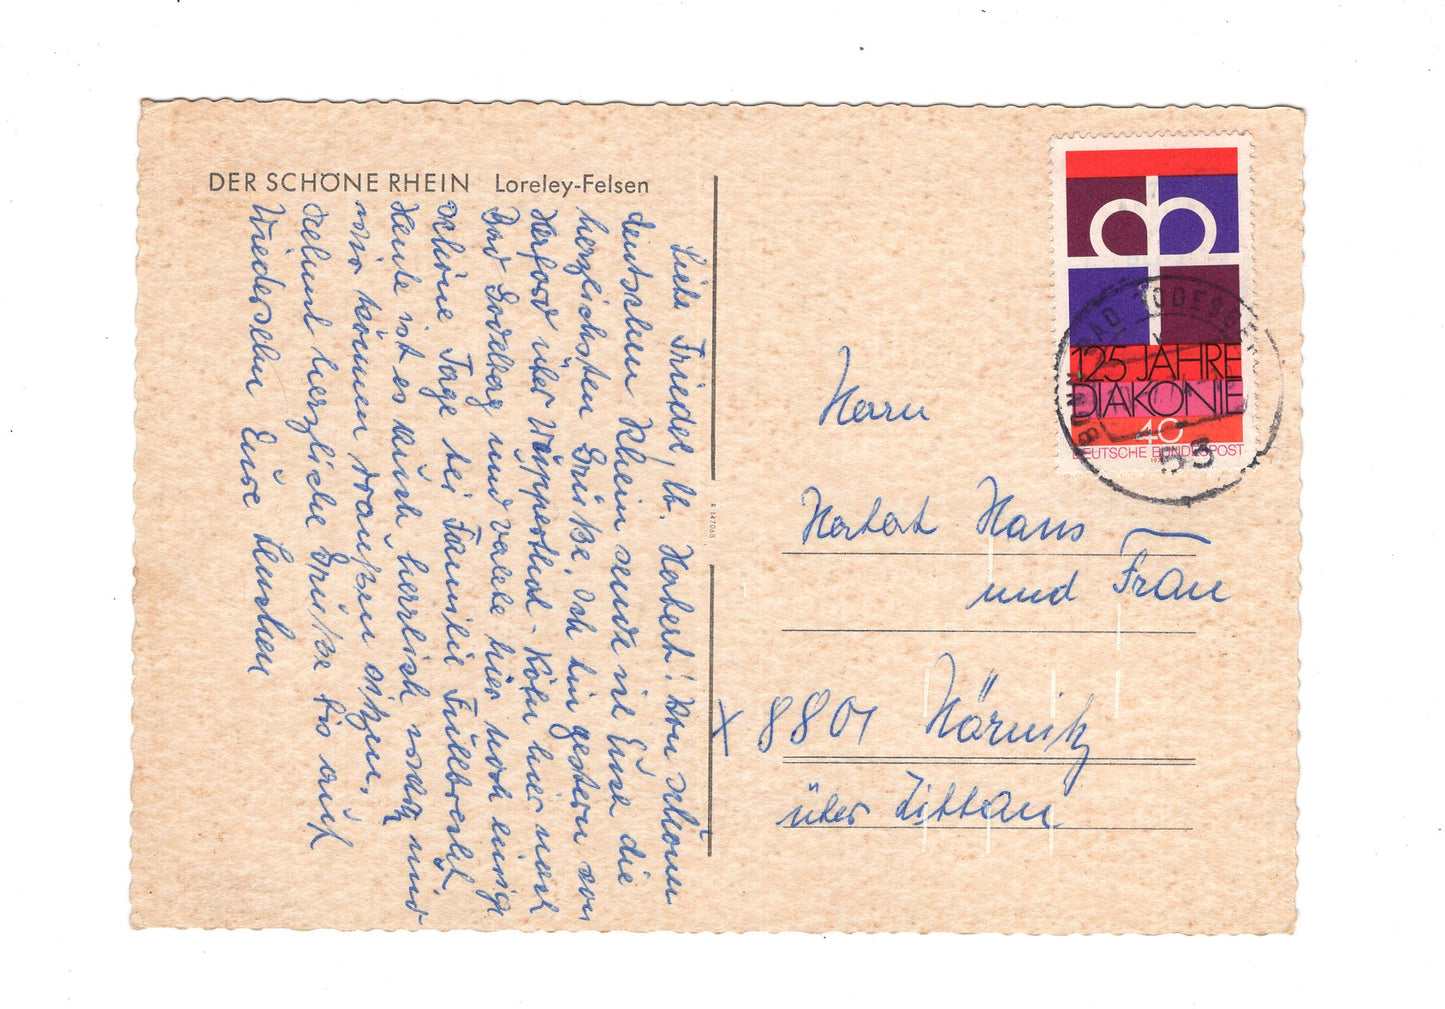 DER SCHÖNE RHEIN Loreley-Felsen
Liebe Friedel, lb. Herbert! Vom schönen
deutschen Rhein sende ich Euch die
herzlichsten Grüße. Ich bin gestern von
Herford über Wuppertal - Köln hier nach
Bad Godesberg und verlebe hier noch einige
schöne Tage bei Familie
Heute ist es auch herrlich und
wir können draußen sitzen.
herzliche Grüße bis auf
Wiedersehn Eure
R 147068
125 JAHRE
DIAKONIE
40
DEUTSCHE BUNDESPOST
BONN-BAD GODESBERG
53
Herrn
Herbert Hans
und Frau
x 8801 Hörnitz
über Zittau